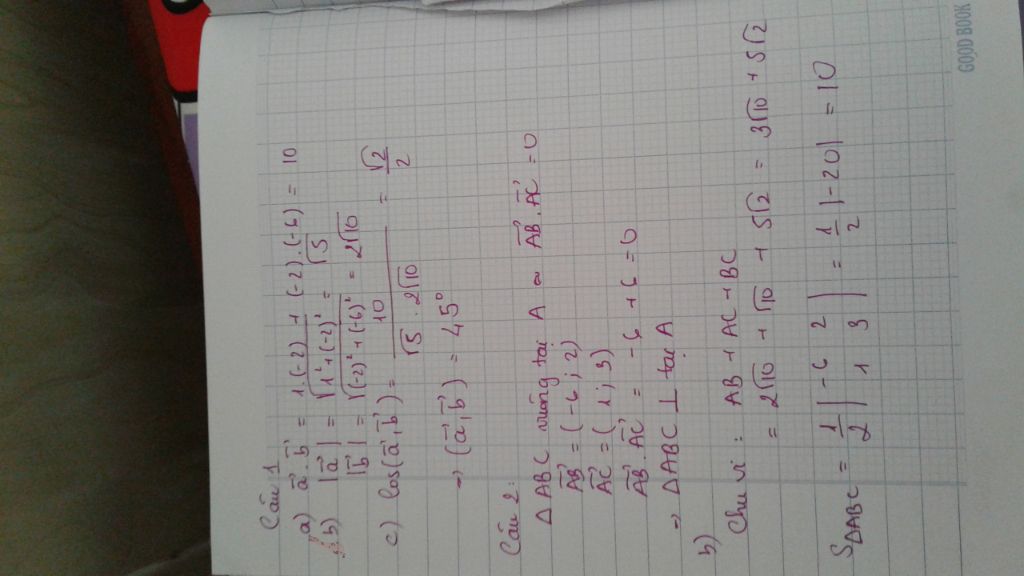 Câu 1
a) a⃗.b⃗ = 1.(-2) + (-2).(-6) = 10
b) |a⃗| = √(1² + (-2)²) = √5
|b⃗| = √((-2)² + (-6)²) = 2√10
c) cos(a⃗,b⃗) = 10/(√5 . 2√10) = √2/2
→ (a⃗,b⃗) = 45°
Câu 2:
Δ ABC vuông tại A ∞ AB⃗.AC⃗ = 0
AB⃗ = (-6; 2)
AC⃗ = (1; 3)
AB⃗.AC⃗ = -6 + 6 = 0
→ ΔABC ⊥ tại A
b)
Chu vi : AB + AC + BC
= 2√10 + √10 + 5√2 = 3√10 + 5√2
SΔABC = 1/2 |-6 2; 1 3| = 1/2 |-20| = 10
GOOD BOOK